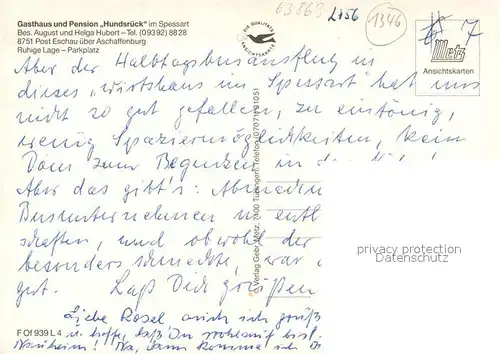 63863
2156
1346
Gasthaus und Pension „Hundsrück" im Spessart
Bes. August und Helga Hubert – Tel. (09392) 8828
8751 Post Eschau über Aschaffenburg
Ruhige Lage – Parkplatz
DIE QUALITÄTS ANSICHTSKARTE
7
Metz
Ansichtskarten
Aber der Halbtagsbusausflug in
dieses „Wirtshaus im Spessart" hat uns
nicht so gut gefallen, zu eintönig,
wenig Spaziermöglichkeiten, kein
Dom zum Begucken in
Aber das gibt's:
Busunternehmen
schaften, und obwohl der
besonders schmeckte, war
gut. Laß Dich grüßen
Liebe Rosel auch ich grüß
u. hoffe, daß Du wohlauf bist.
Nauheim! Na, dann komme ich
© Verlag Gebr. Metz, 7400 Tübingen, Telefon (07071) 91051
F Of 939 L 4
privacy protection
DatenSchutz